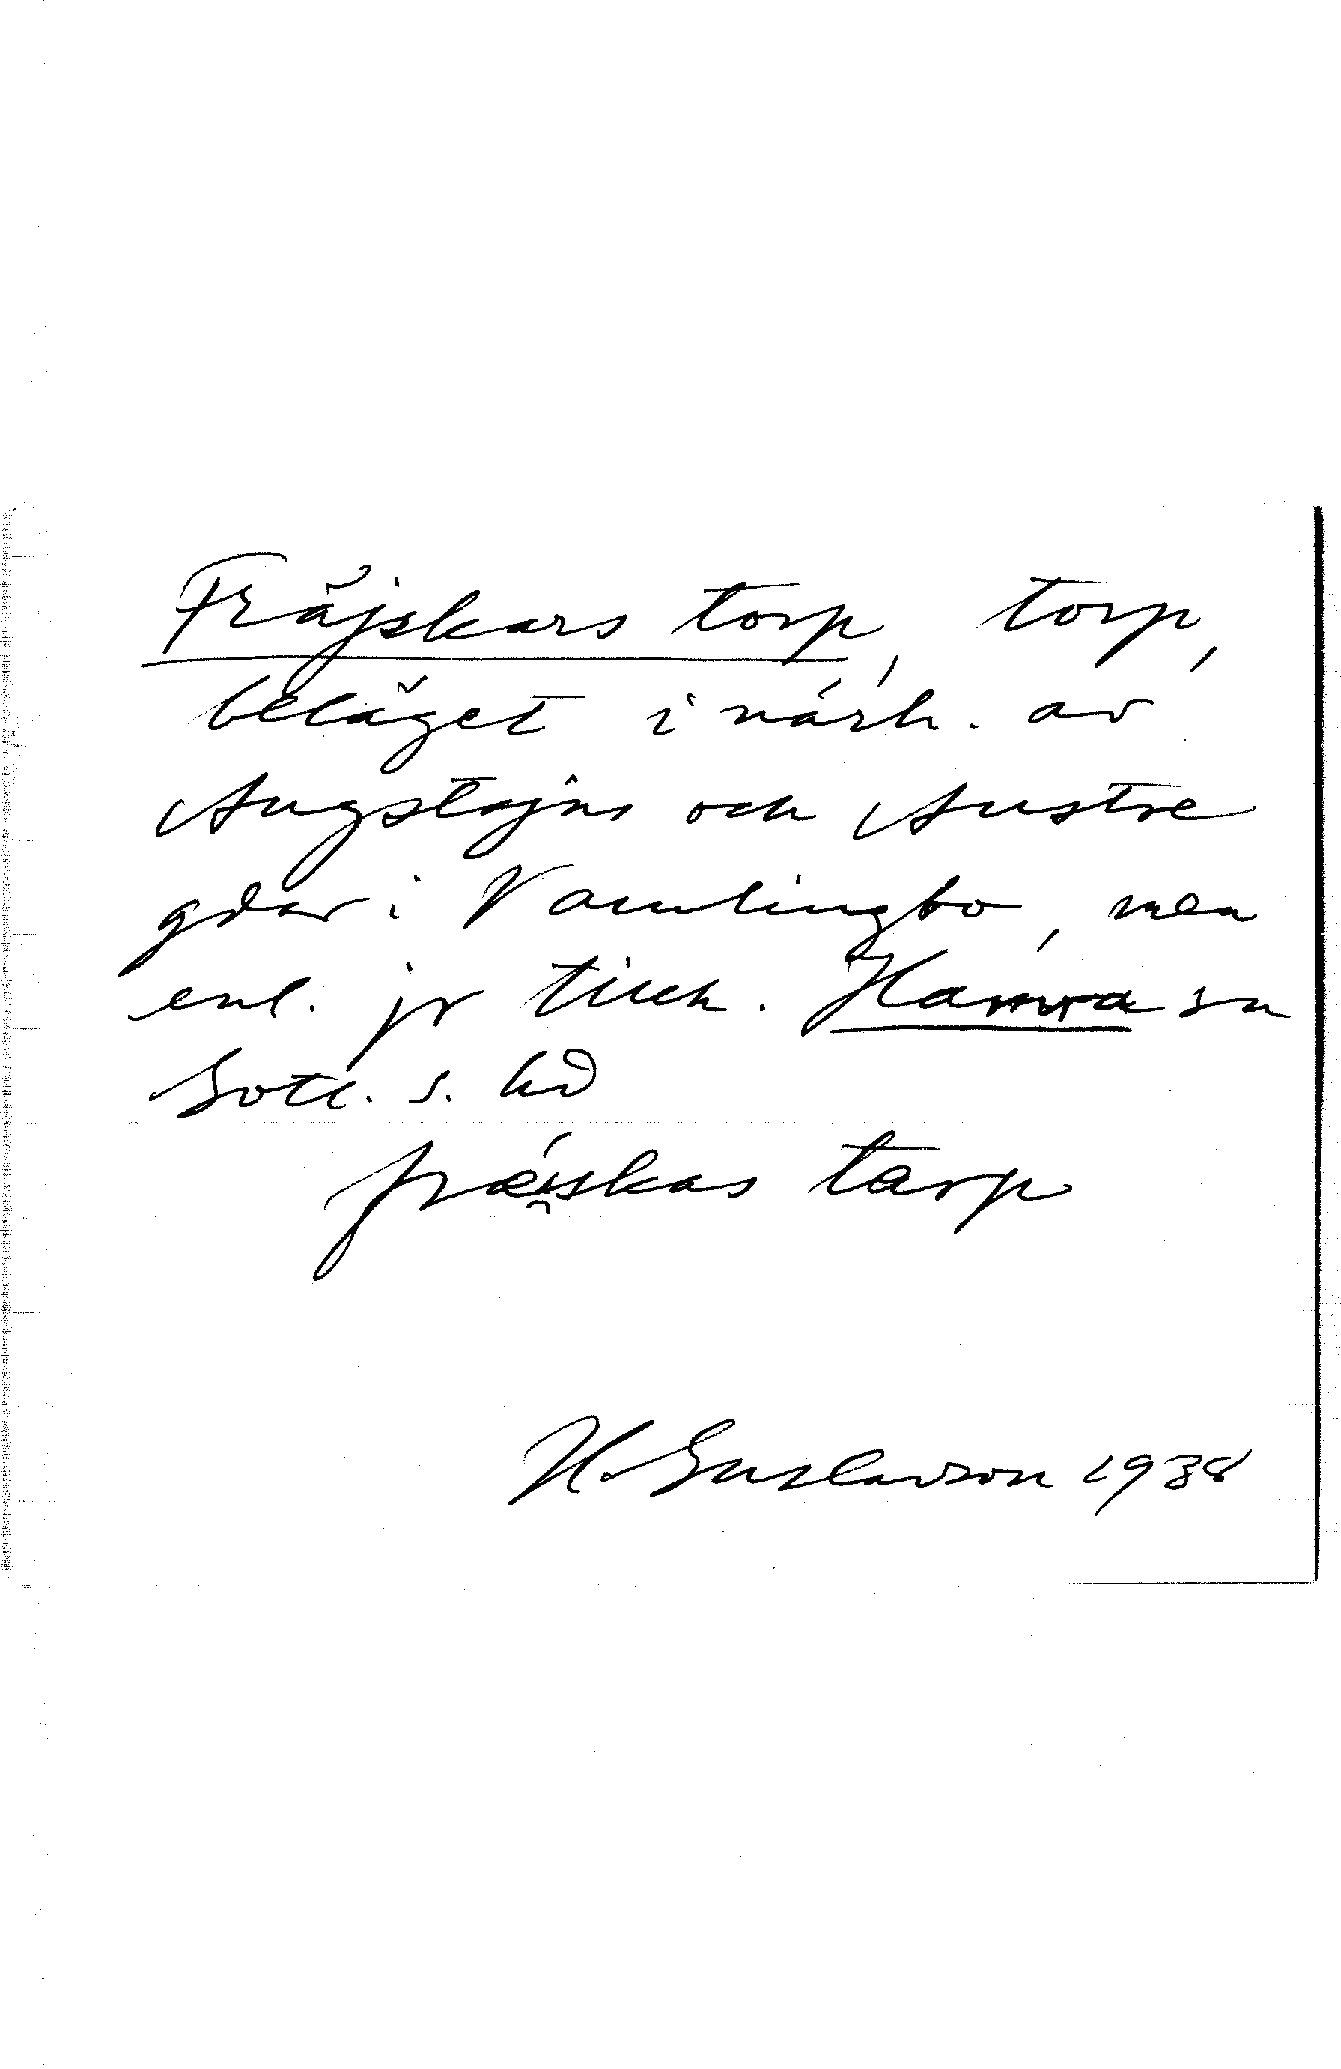 Fräjskars torp, torp,
beläget i närh. av
Augstajns och Austre
gdar i Vamlingbo, men
enl. jr tillh. Hamra sn
Gotl. s. hd
fræi̯skas tarp
H. Gustavson 1938